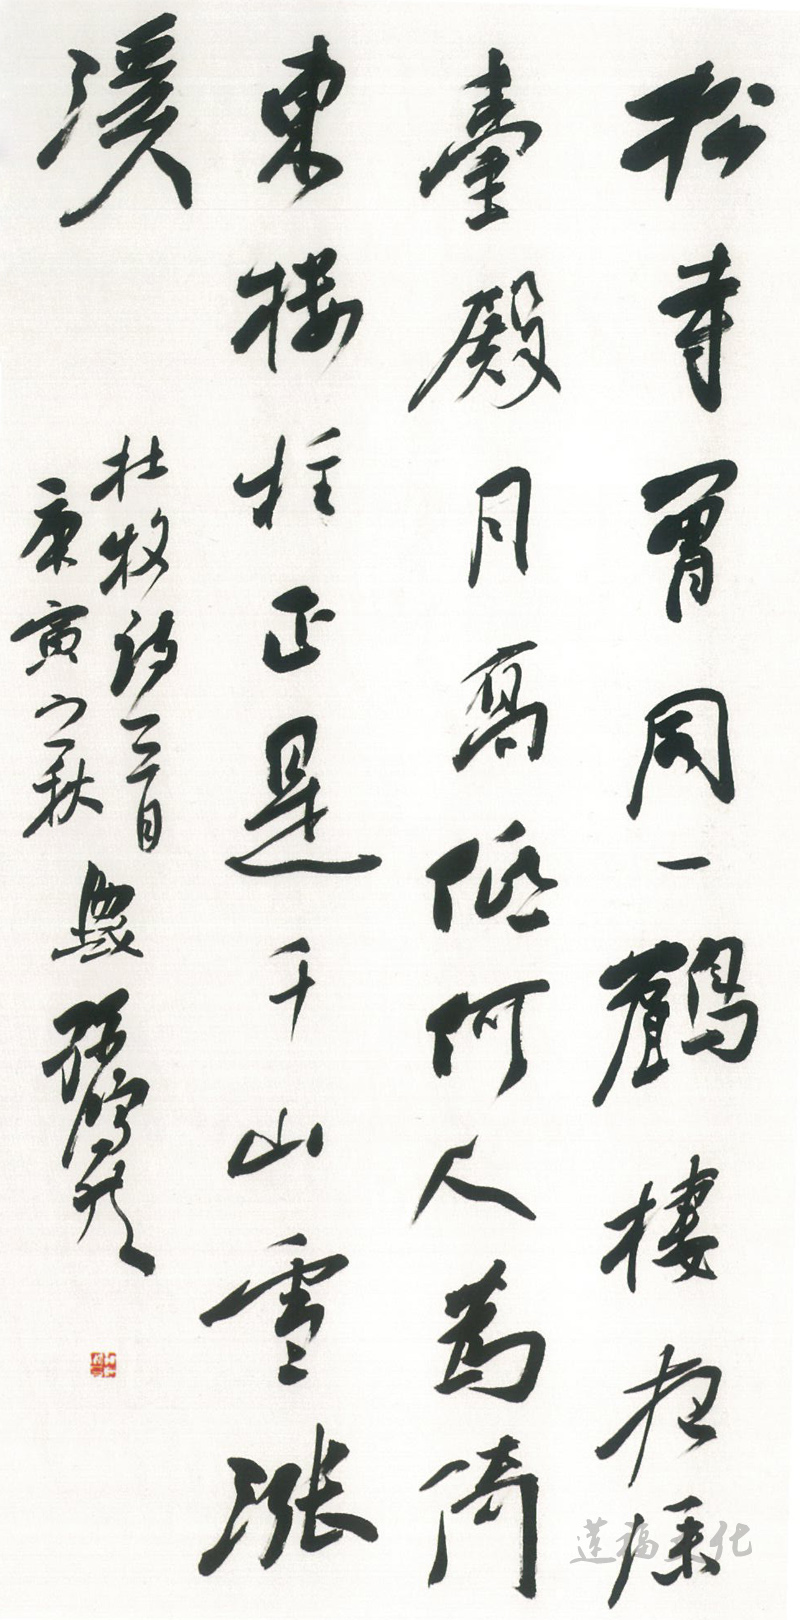 松寺曾同一鶴棲夜深
臺殿月高低何人為倚
東樓柱正是千山雪漲
溪
杜牧詩一首
庚寅之秋
蓮福文化